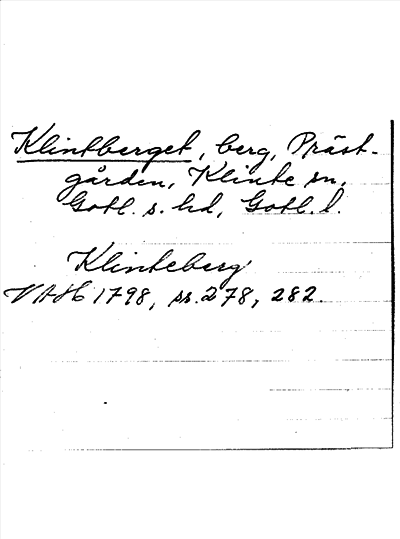 Klintberget, berg, Präst-
gården, Klinte sn,
Gotl. s. hd, Gotl. l.
Klinteberg
VAH 1798, ss. 278, 282.